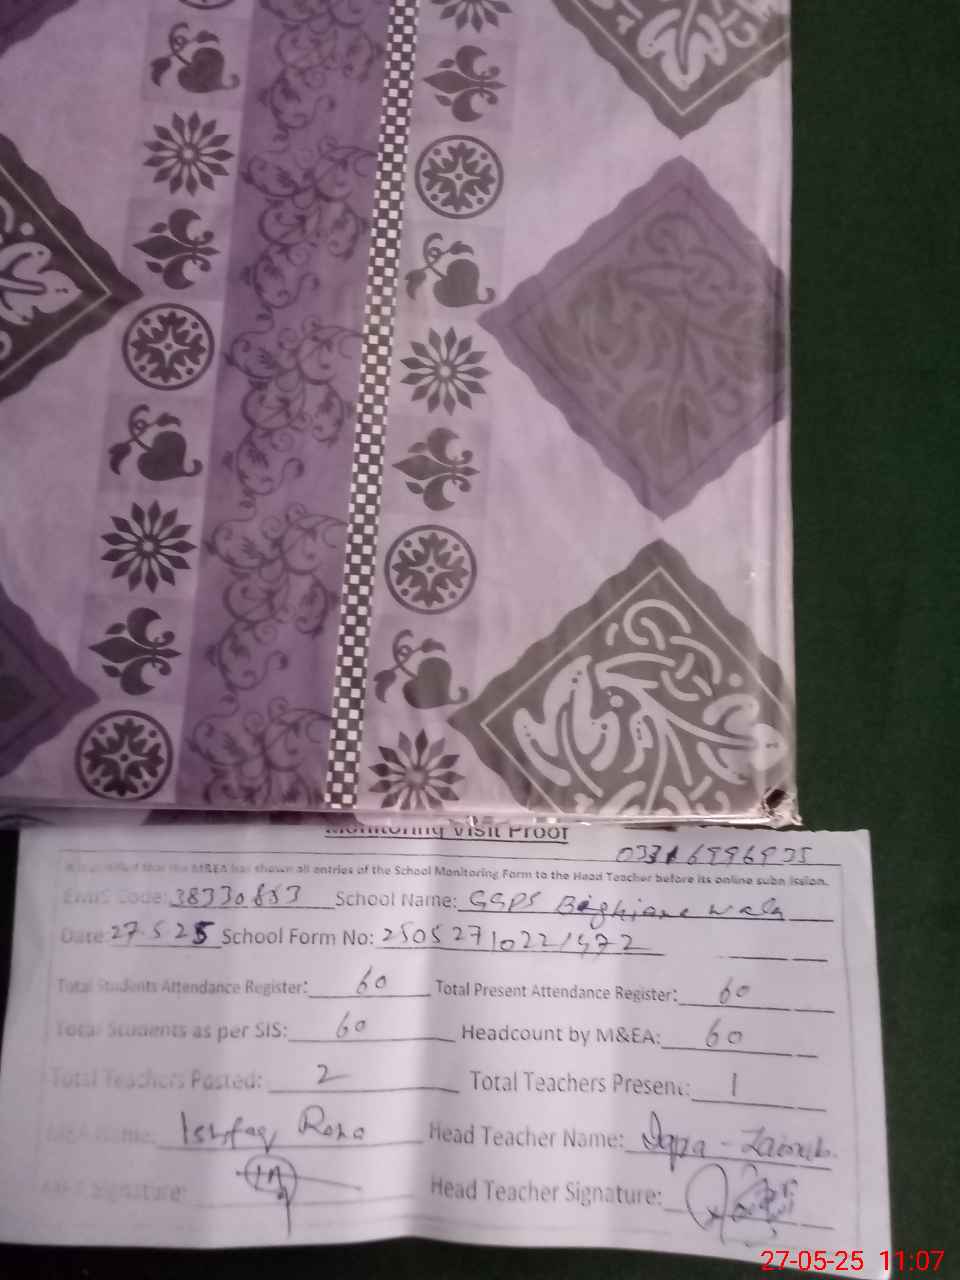 Monitoring Visit Proof
03316996935
It is certified that the M&EA has shown all entries of the School Monitoring Form to the Head Teacher before its online submission.
EMIS Code: 38330853 School Name: GGPS Wala
Date: 27.5.25 School Form No:
Total Students Attendance Register: 60 Total Present Attendance Register: 60
Total Students as per SIS: 60 Headcount by M&EA: 60
Total Teachers Posted: 2 Total Teachers Present: 1
MEA Name: Ishfaq Head Teacher Name: Iqra - Zainab
MEA Signature: Head Teacher Signature:
27-05-25 11:07